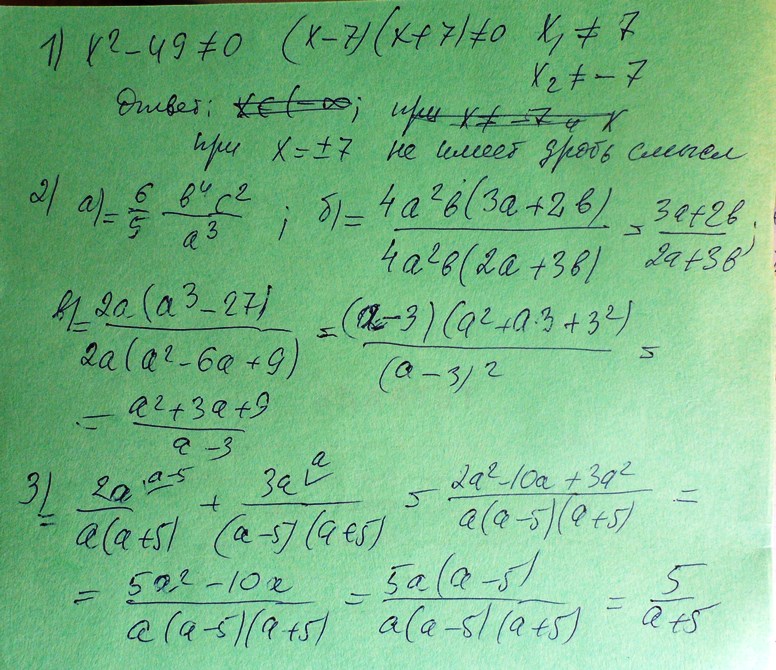 1) x² - 49 ≠ 0 (x-7)(x+7) ≠ 0 x₁ ≠ 7
x₂ ≠ -7
Ответ: x ∈ (-∞; при x ≠ -7 и x
при x = ±7 не имеет дробь смысл
2) а) = 6/5 b⁴c²/a³ ; б) = 4a²b(3a+2b)/4a²b(2a+3b) = 3a+2b/2a+3b ;
в) = 2a(a³-27)/2a(a²-6a+9) = (a-3)(a²+a·3+3²)/(a-3)² =
= a²+3a+9/a-3
3) = 2a ᵃ⁻⁵/a(a+5) + 3a ᵃ/(a-5)(a+5) = 2a²-10a+3a²/a(a-5)(a+5) =
= 5a²-10a/a(a-5)(a+5) = 5a(a-5)/a(a-5)(a+5) = 5/a+5